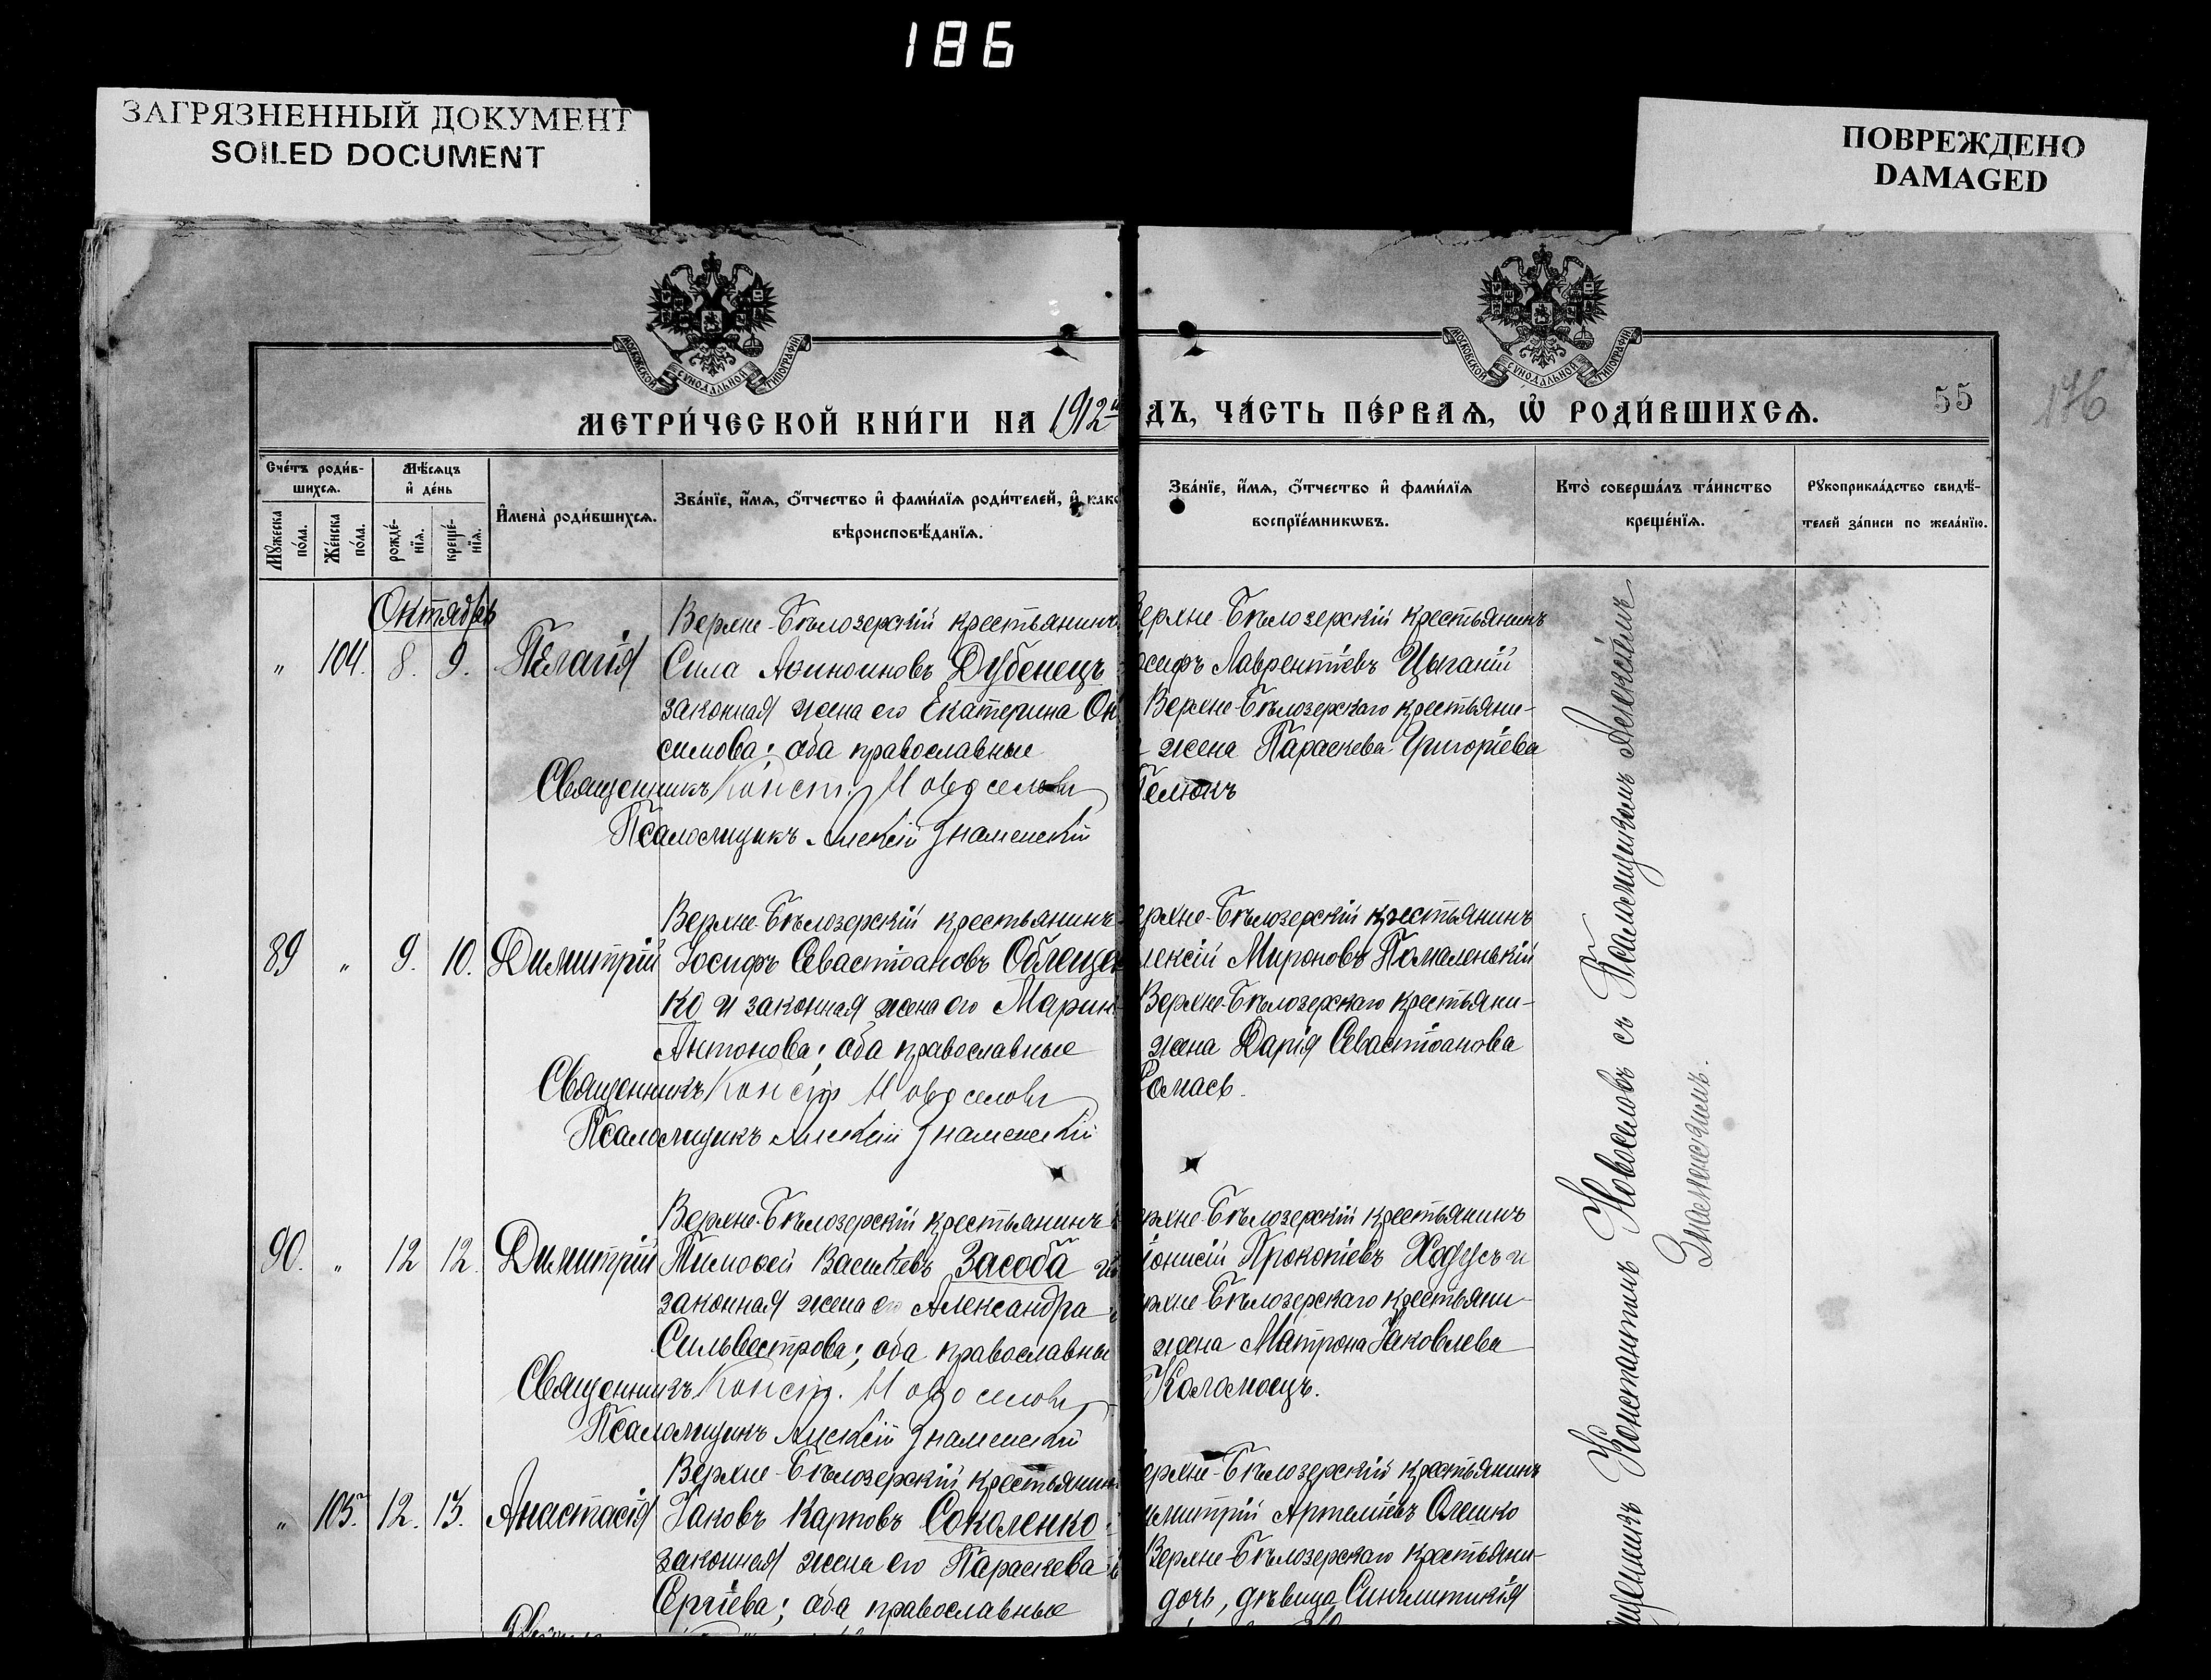 186
ЗАГРЯЗНЕННЫЙ ДОКУМЕНТ
SOILED DOCUMENT
ПОВРЕЖДЕНО
DAMAGED
МОСКОВСКОЙ СУНОДАЛЬНОЙ ТИПОГРАФІИ
МОСКОВСКОЙ СУНОДАЛЬНОЙ ТИПОГРАФІИ
МЕТРИ́ЧЕСКОЙ КНИ́ГИ НА 1912
ДЪ, ЧА́СТЬ ПЕ́РВАѦ, Ѡ҆ РОДИ́ВШИХСѦ.
55
176
Сче́тъ роди́в-
шихсѧ.
Мѣ́сѧцъ
и҆ де́нь
Мꙋ́жеска
по́ла.
Же́нска
по́ла.
рожде́-
нїѧ.
креще́-
нїѧ.
И҆мена̀ роди́вшихсѧ.
Зва́нїе, и҆́мѧ, ѻ҆́тчество и҆ фами́лїѧ роди́телей, и҆ како
вѣроисповѣ́данїѧ.
Зва́нїе, и҆́мѧ, ѻ҆́тчество и҆ фами́лїѧ
воспрїе́мникѡвъ.
Кто̀ соверша́лъ та́инство
креще́нїѧ.
Рꙋкоприкла́дство свидѣ́-
телей за́писи по жела́нїю.
Октябрь
„ 104. 8. 9. Пелагія
Верхне-Бѣлозерскій крестьянинъ
Сила Дубенецъ
законная жена его Екатерина Он
симова; оба православные
Священникъ Конст. Новоселовъ
Псаломщикъ Алексій Знаменскій
ерхне-Бѣлозерскій крестьянинъ
осифъ Лаврентіевъ Цыганій
Верхне-Бѣлозерскаго крестьяни-
жена Параскева Григоріева
Гелюхъ
89 „ 9. 10. Димитрій
Верхне-Бѣлозерскій крестьянинъ
Іосифъ Севастіановъ Облеще
ко и законная жена его Марин
Антонова; оба православные
Священникъ Конст. Новоселовъ
Псаломщикъ Алексій Знаменскій
ерхне-Бѣлозерскій крестьянинъ
лексій Мироновъ Помаленькій
Верхне-Бѣлозерскаго крестьяни-
жена Дарія Севастіанова
омась.
90. „ 12 12. Димитрій
Верхне-Бѣлозерскій крестьянинъ
Тимоѳей Васильевъ Засоба и
законная жена его Александра
Сильвестрова; оба православны
Священникъ Конст. Новоселовъ
Псаломщикъ Алексій Знаменскій
ерхне-Бѣлозерскій крестьянинъ
іонисій Прокопіевъ Ходусъ и
ерхне-Бѣлозерскаго крестьяни-
жена Матрона Іаковлева
Коломоецъ.
„ 105. 12. 13. Анастасія
Верхне-Бѣлозерскій крестьянин
Іаковъ Карповъ Соколенко
законная жена его Параскева
Сергіева; оба православные
ерхне-Бѣлозерскій крестьянинъ
имитрій Артеміевъ Олешко
Верхне-Бѣлозерскаго крестьяни-
дочь, дѣвица Синклитикія
щенникъ Константинъ Новоселовъ съ Псаломщикомъ Алексіемъ
Знаменскимъ.